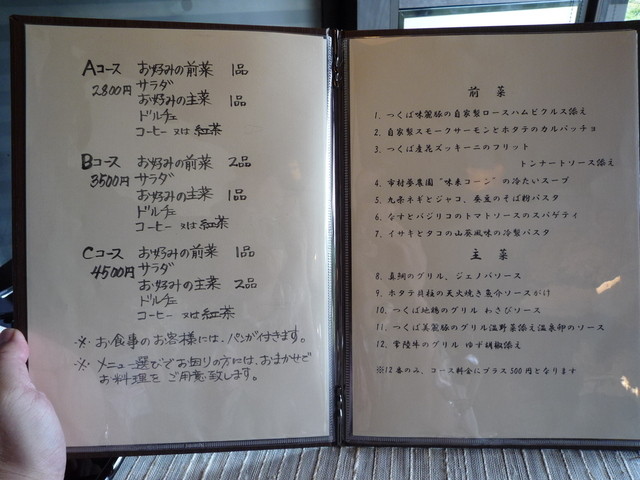 Aコース お好みの前菜 1品
2800円 サラダ
お好みの主菜 1品
ドルチェ
コーヒー 又は 紅茶
Bコース お好みの前菜 2品
3500円 サラダ
お好みの主菜 1品
ドルチェ
コーヒー 又は 紅茶
Cコース お好みの前菜 1品
4500円 サラダ
お好みの主菜 2品
ドルチェ
コーヒー 又は 紅茶
※ お食事のお客様には、パンが付きます。
※ メニュー選びでお困りの方には、おまかせで
お料理を ご用意致します。
前菜
1. つくば味麗豚の自家製ロースハムピクルス添え
2. 自家製スモークサーモンとホタテのカルパッチョ
3. つくば産花ズッキーニのフリット
トンナートソース添え
4. 市村夢農園 "味来コーン" の冷たいスープ
5. 九条ネギとジャコ、蚕豆のそば粉パスタ
6. なすとバジリコのトマトソースのスパゲティ
7. イサキとタコの山葵風味の冷製パスタ
主菜
8. 真鯛のグリル、ジェノバソース
9. ホタテ貝柱の天火焼き魚介ソースがけ
10. つくば地鶏のグリル わさびソース
11. つくば美豚のグリル温野菜添え温泉卵のソース
12. 常陸牛のグリル ゆず胡椒添え
※12番のみ、コース料金にプラス500円となります